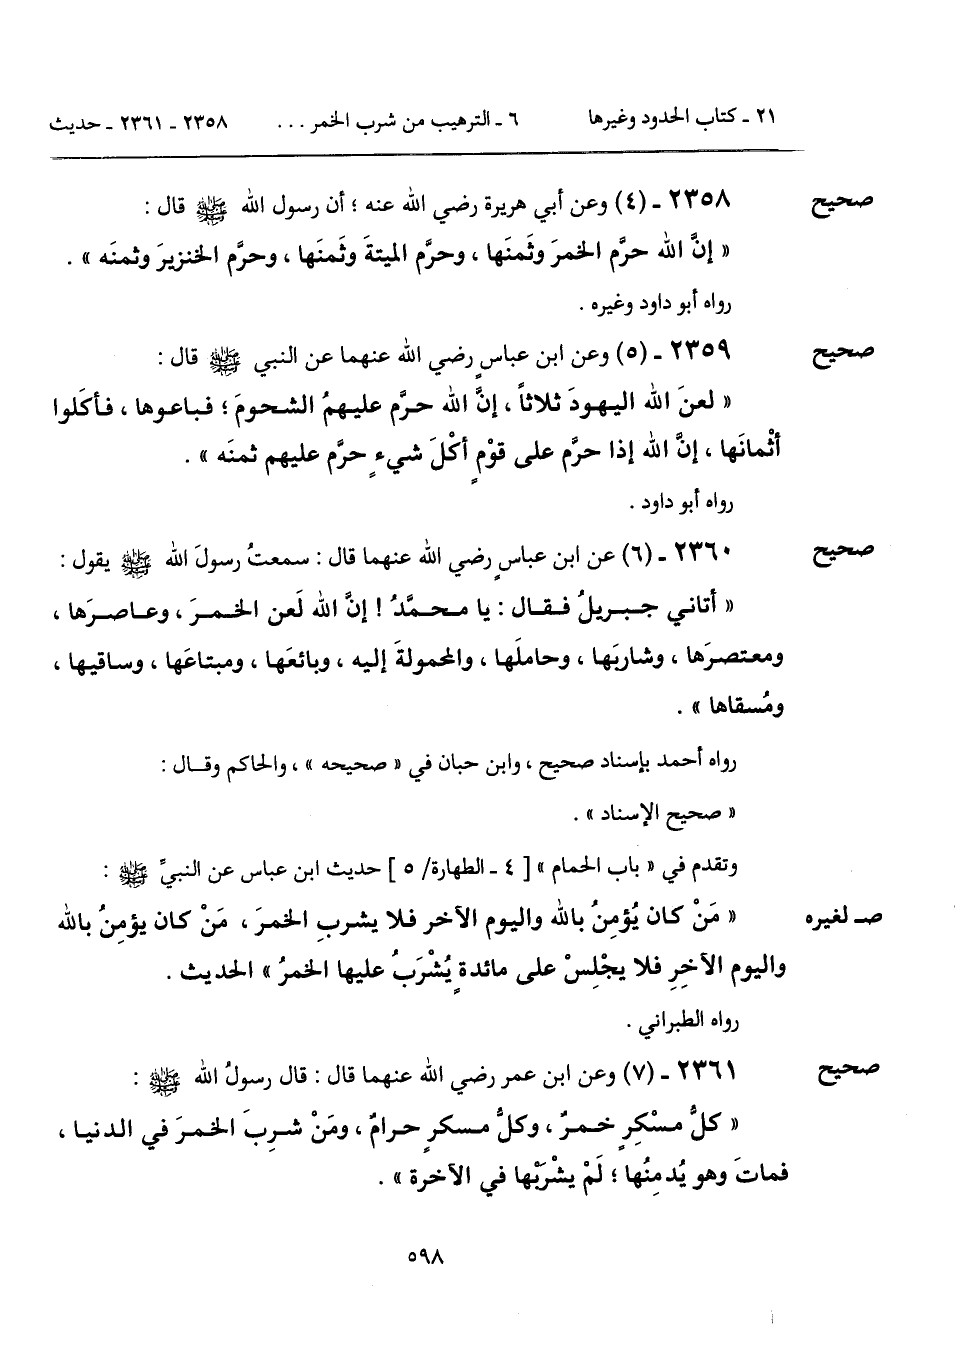 ٢١ ـ كتاب الحدود وغيرها ٦ ـ الترهيب من شرب الخمر ... ٢٣٥٨ ـ ٢٣٦١ ـ حديث
صحيح ٢٣٥٨ ـ (٤) وعن أبي هريرة رضي الله عنه ؛ أن رسول الله ﷺ قال :
« إنَّ الله حرَّم الخمرَ وثَمنَها ، وحرَّم الميتةَ وثَمنَها ، وحرَّم الخنزيرَ وثمنَه » .
رواه أبو داود وغيره .
صحيح ٢٣٥٩ ـ (٥) وعن ابن عباسٍ رضي الله عنهما عن النبي ﷺ قال :
« لعنَ الله اليهودَ ثلاثاً ، إنَّ الله حرَّم عليهمُ الشحومَ ؛ فباعوها ، فأكَلوا
أثْمانَها ، إنَّ الله إذا حرَّم على قوْمٍ أكْلَ شيءٍ حرَّم عليهم ثمنَه » .
رواه أبو داود .
صحيح ٢٣٦٠ ـ (٦) عن ابن عباسٍ رضي الله عنهما قال : سمعتُ رسولَ الله ﷺ يقول :
« أتاني جبريلُ فقال : يا محمَّدُ ! إنَّ الله لَعن الخمرَ ، وعاصرَها ،
ومعتصرَها ، وشاربَها ، وحاملَها ، والمحمولةَ إليه ، وبائعَها ، ومبتاعَها ، وساقيها ،
ومُسقاها » .
رواه أحمد بإسناد صحيح ، وابن حبان في « صحيحه » ، والحاكم وقال :
« صحيح الإسناد » .
وتقدم في « باب الحمام » [ ٤ ـ الطهارة/ ٥ ] حديث ابن عباس عن النبيِّ ﷺ :
صـ لغيره « مَنْ كان يُؤمنُ بالله واليوم الآخر فلا يشربِ الخمرَ ، مَنْ كان يؤمِنُ بالله
واليوم الآخِرِ فلا يجْلِسْ على مائدةٍ يُشْرَبُ عليها الخمرُ » الحديث .
رواه الطبراني .
صحيح ٢٣٦١ ـ (٧) وعن ابن عمر رضي الله عنهما قال : قال رسولُ الله ﷺ :
« كلُّ مسْكِرٍ خمرٌ ، وكلُّ مسكرٍ حرامٌ ، ومَنْ شربَ الخمرَ في الدنيا ،
فماتَ وهو يُدمِنُها ؛ لَمْ يشْرَبْها في الآخرة » .
٥٩٨